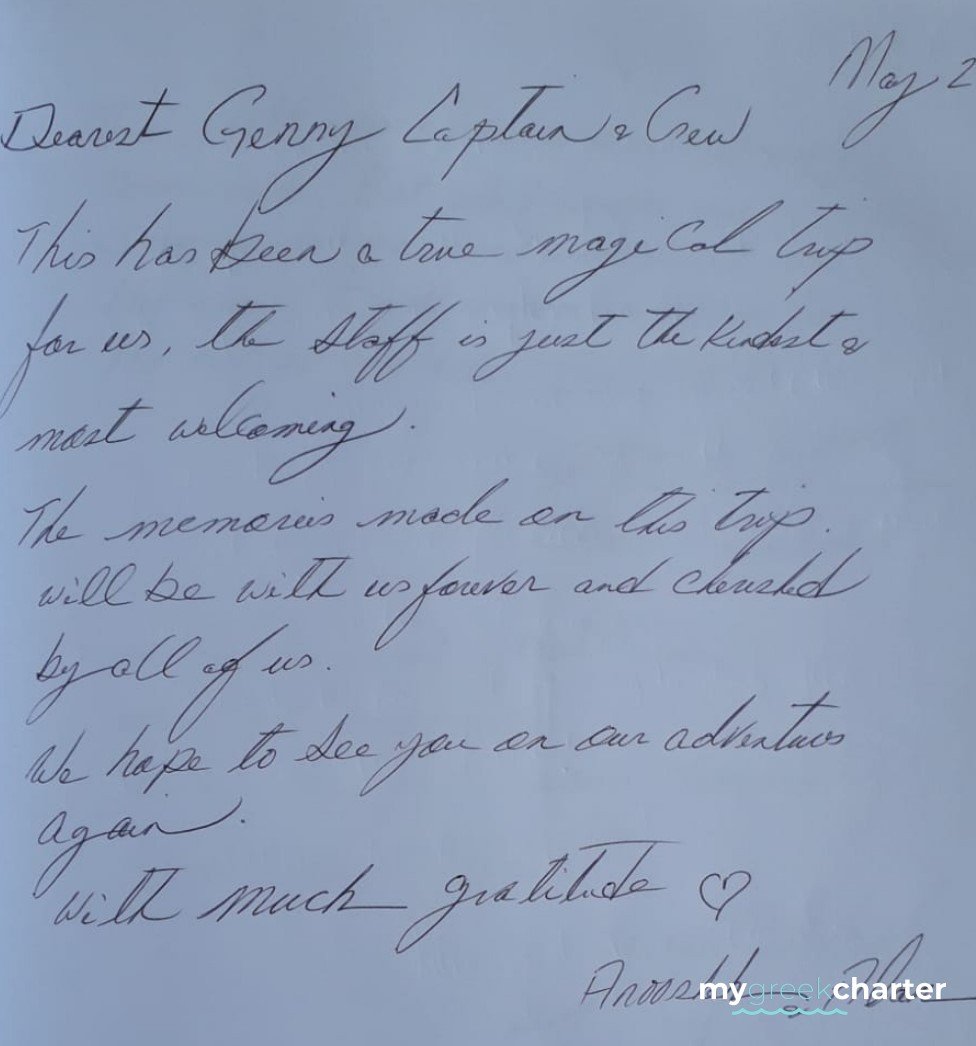 May 2
Dearest Genny Captain & Crew
This has been a true magical trip
for us, the staff is just the kindest &
most welcoming.
The memories made on this trip.
will be with us forever and cherished
by all of us.
We hope to see you on our adventures
again.
with much gratitude ♡
mygreekcharter